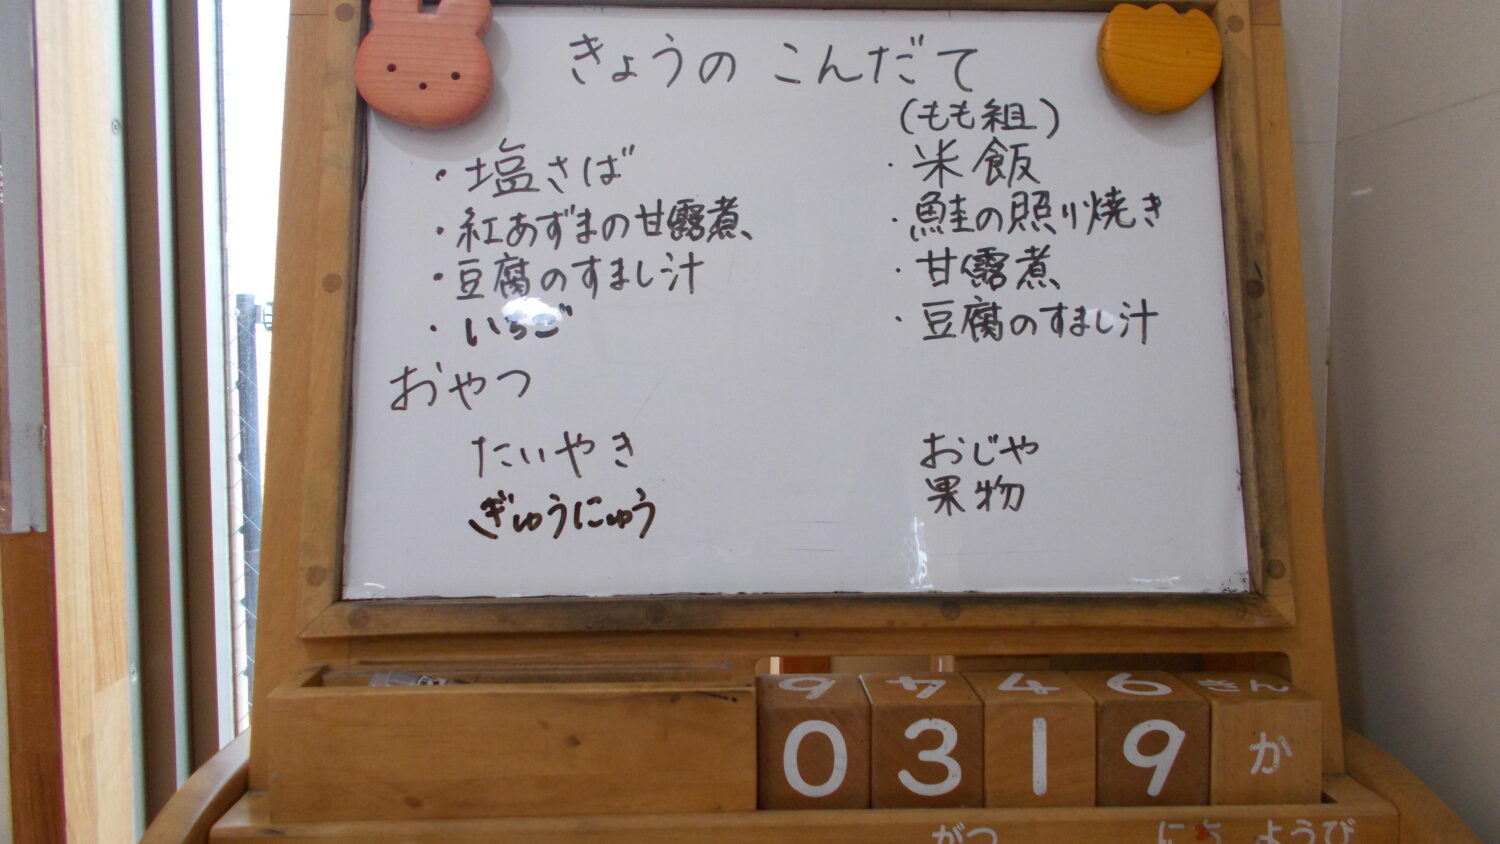 きょうの こんだて
・塩さば
・紅あずまの甘露煮
・豆腐のすまし汁
・いちご
おやつ
たいやき
ぎゅうにゅう
(もも組)
・米飯
・鮭の照り焼き
・甘露煮
・豆腐のすまし汁
おじや
果物
6 4 4 9 きん
0 3 1 9 か
がつ にち ようび